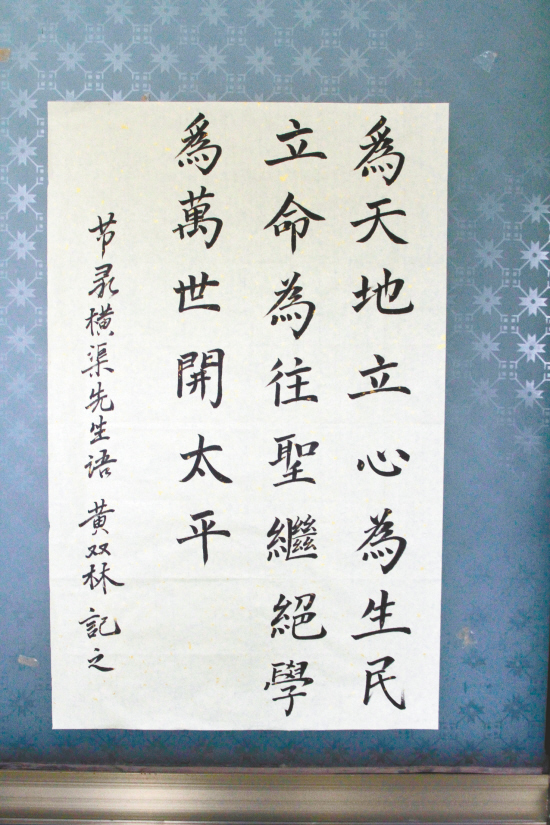 為天地立心為生民
立命為往聖繼絕學
為萬世開太平
节录横渠先生语 黄双林 記之